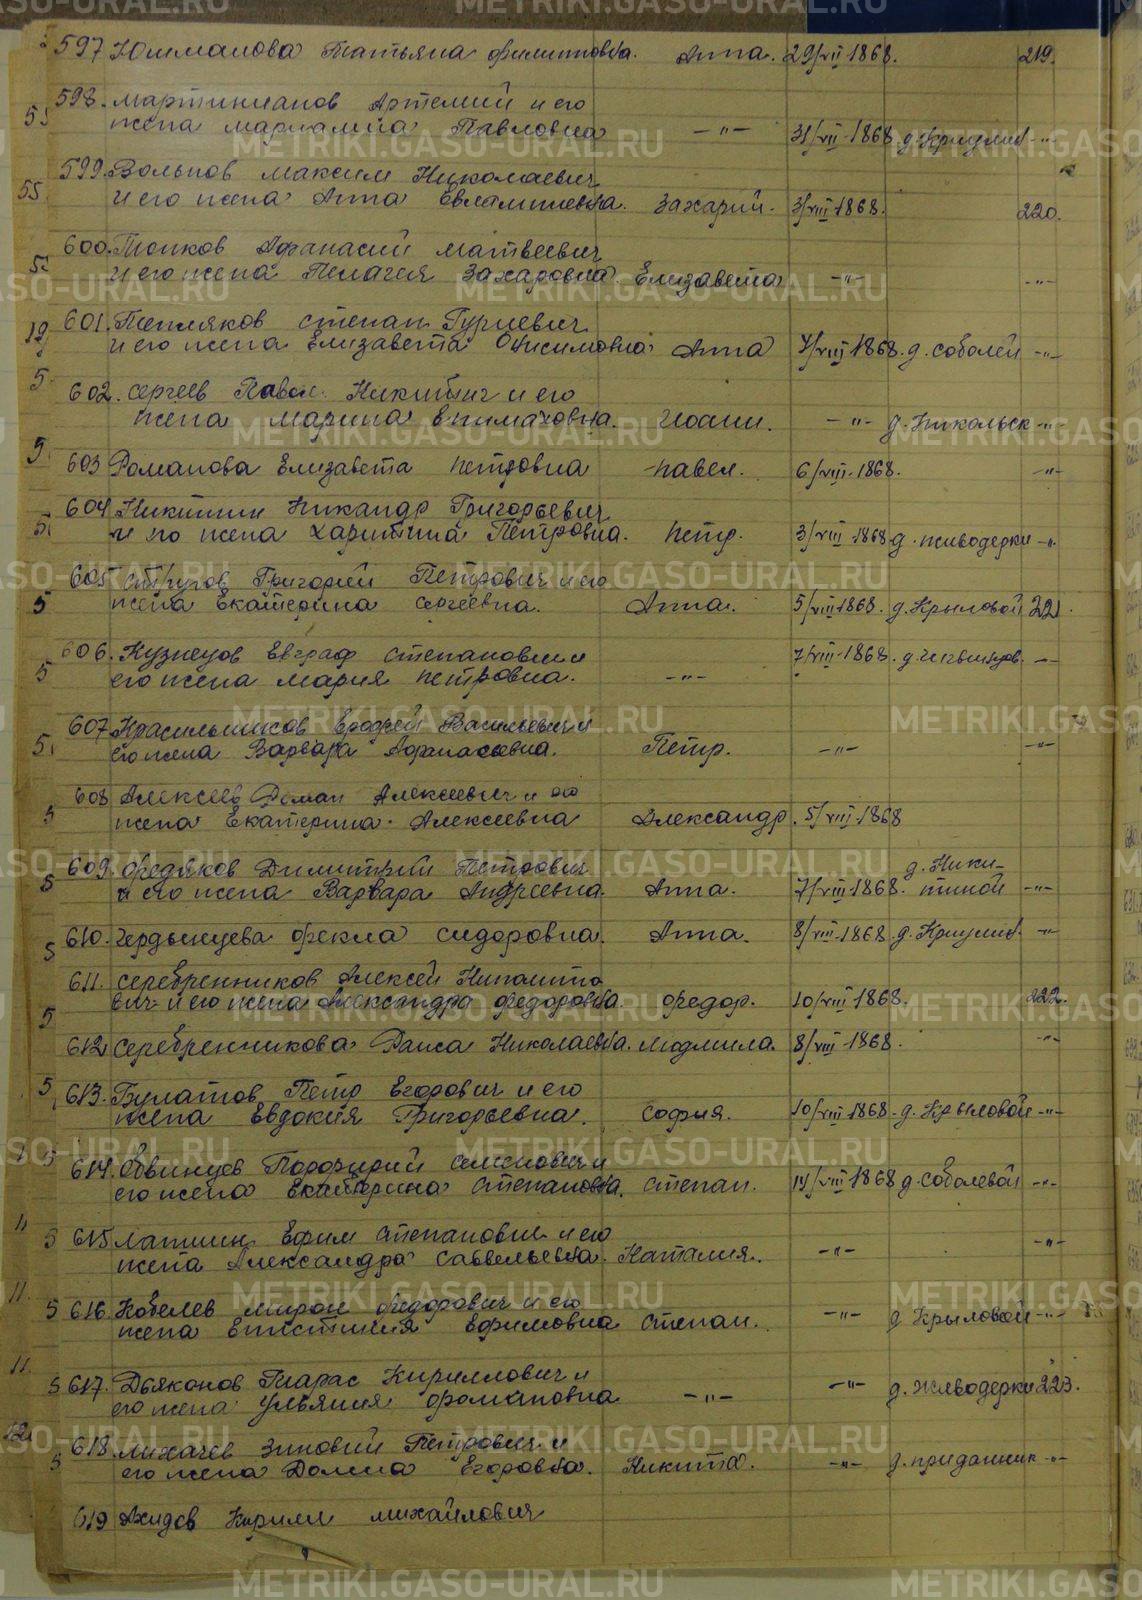 597 Юшманова Татьяна Филипповна. Анна. 29/VII 1868. 219.
598. Мартинианов Артемий и его
жена Мариамна Павловна -"- 31/VII-1868. д. Криулин -"-
599. Вольнов Максим Николаевич
и его жена Анна Евлампиевна. Захарий. 3/VIII-1868. 220.
600. Попков Афанасий Матвеевич
и его жена Пелагея Захаровна Елизавета -"- -"-
601. Тепляков Степан Гуриевич
и его жена Елизавета Онисимовна Анна 7/VIII 1868. д. Соболей -"-
602. Сергеев Павел Никитич и его
жена Марина Епимаховна. Иоанн. -"- д. Никольск -"-
603 Романова Елизавета Петровна Павел. 6/VIII-1868. -"-
604 Никитин Никандр Григорьевич
и его жена Харитина Петровна. Петр. 3/VIII-1868 д. Живодерки -"-
605 Григорий Петрович и его
жена Екатерина Сергеевна. Анна. 5/VIII-1868. д. Крыловой 221.
606. Кузнецов Евграф Степанович и
его жена Мария Петровна. -"- 7/VIII-1868. д. -"-
607 Красильников Ерофей Васильевич и
его жена Варвара Афанасьевна. Петр. -"- -"-
608 Алексеев Роман Алексеевич и его
жена Екатерина Алексеевна Александр. 5/VIII-1868
609. Федяков Димитрий Петрович д. Ники-
и его жена Варвара Андреевна. Анна. 7/VIII-1868. тиной -"-
610. Чердынцева Фекла Сидоровна. Анна. 8/VIII-1868 д. Криулин -"-
611. Серебренников Алексей Ипполито
вич и его жена Александра Федоровна. Федор. 10/VIII 1868. 222.
612 Серебренникова Раиса Николаевна. Людмила. 8/VIII-1868. -"-
613. Булатов Петр Егорович и его
жена Евдокия Григорьевна. София. 10/VIII 1868. д. Крыловой -"-
614. Обвинцев Порфирий Семенович и
его жена Екатерина Степановна. Степан. 11/VIII 1868 д. Соболевой -"-
615 Лапшин Ефим Степанович и его
жена Александра Савельевна. Наталия. -"- -"-
616. Кобелев Мирон Федорович и его
жена Епистимия Ефимовна Степан. -"- д Крыловой -"-
617. Дьяконов Тарас Кириллович и
его жена Ульяния Романовна -"- -"- д. Живодерки 223.
618. Лихачев Зиновий Петрович и
его жена Домна Егоровна. Никита. -"- д. Приданник -"-
619 Ахидев Кирилл Михайлович
METRIKI.GASO-URAL.RU